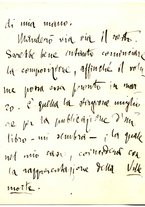 di mia mano.
Manderò via via il resto.
Sarebbe bene intanto cominciare
la composizione, affinché il volu-
me possa esser pronto in mar-
zo. È quella la stagione miglio-
re per la pubblicazione d'un
libro - mi sembra - ; la quale
nel mio caso, coinciderà con
la rappresentazione della Città
morta.